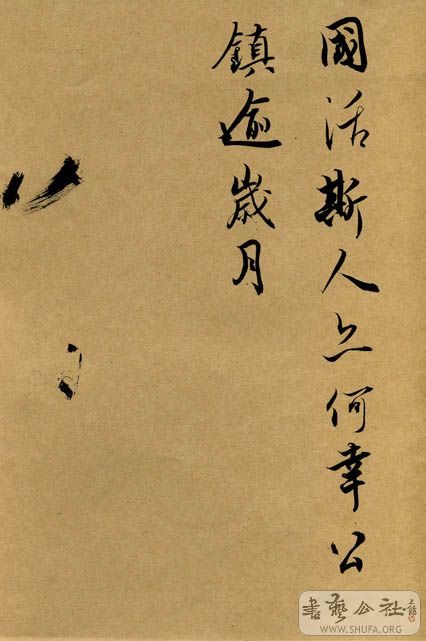 國活斯人亦何幸公
鎮逾歲月
書藝公社
WWW.SHUFA.ORG